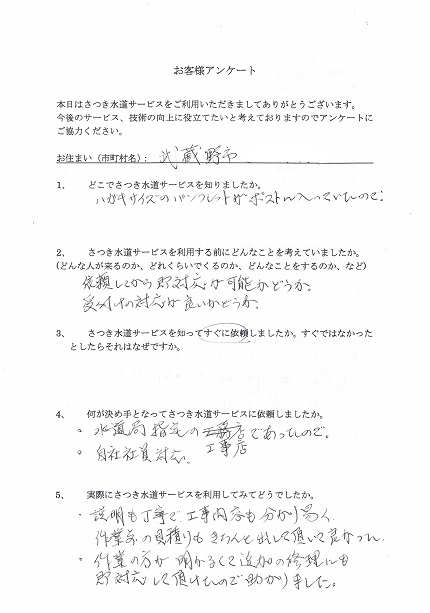 お客様アンケート
本日はさつき水道サービスをご利用いただきましてありがとうございます。
今後のサービス、技術の向上に役立てたいと考えておりますのでアンケートに
ご協力ください。
お住まい（市町村名）： 武蔵野市
1、 どこでさつき水道サービスを知りましたか。
ハガキサイズのパンフレットがポストに入っていたので。
2、 さつき水道サービスを利用する前にどんなことを考えていましたか。
（どんな人が来るのか、どれくらいでくるのか、どんなことをするのか、など）
依頼してから即対応が可能かどうか、
受付けの対応が良いかどうか、
3、 さつき水道サービスを知ってすぐに依頼しましたか。すぐではなかった
としたらそれはなぜですか。
4、 何が決め手となってさつき水道サービスに依頼しましたか。
・水道局指定の
であったので。
工事店
・自社社員対応。
5、 実際にさつき水道サービスを利用してみてどうでしたか。
・説明も丁寧で工事内容も分かり易く、
作業前の見積りもきちんと出して頂いて良かった。
・作業の方が明かるくて追加の修理にも
即対応して頂けたので助かりました。